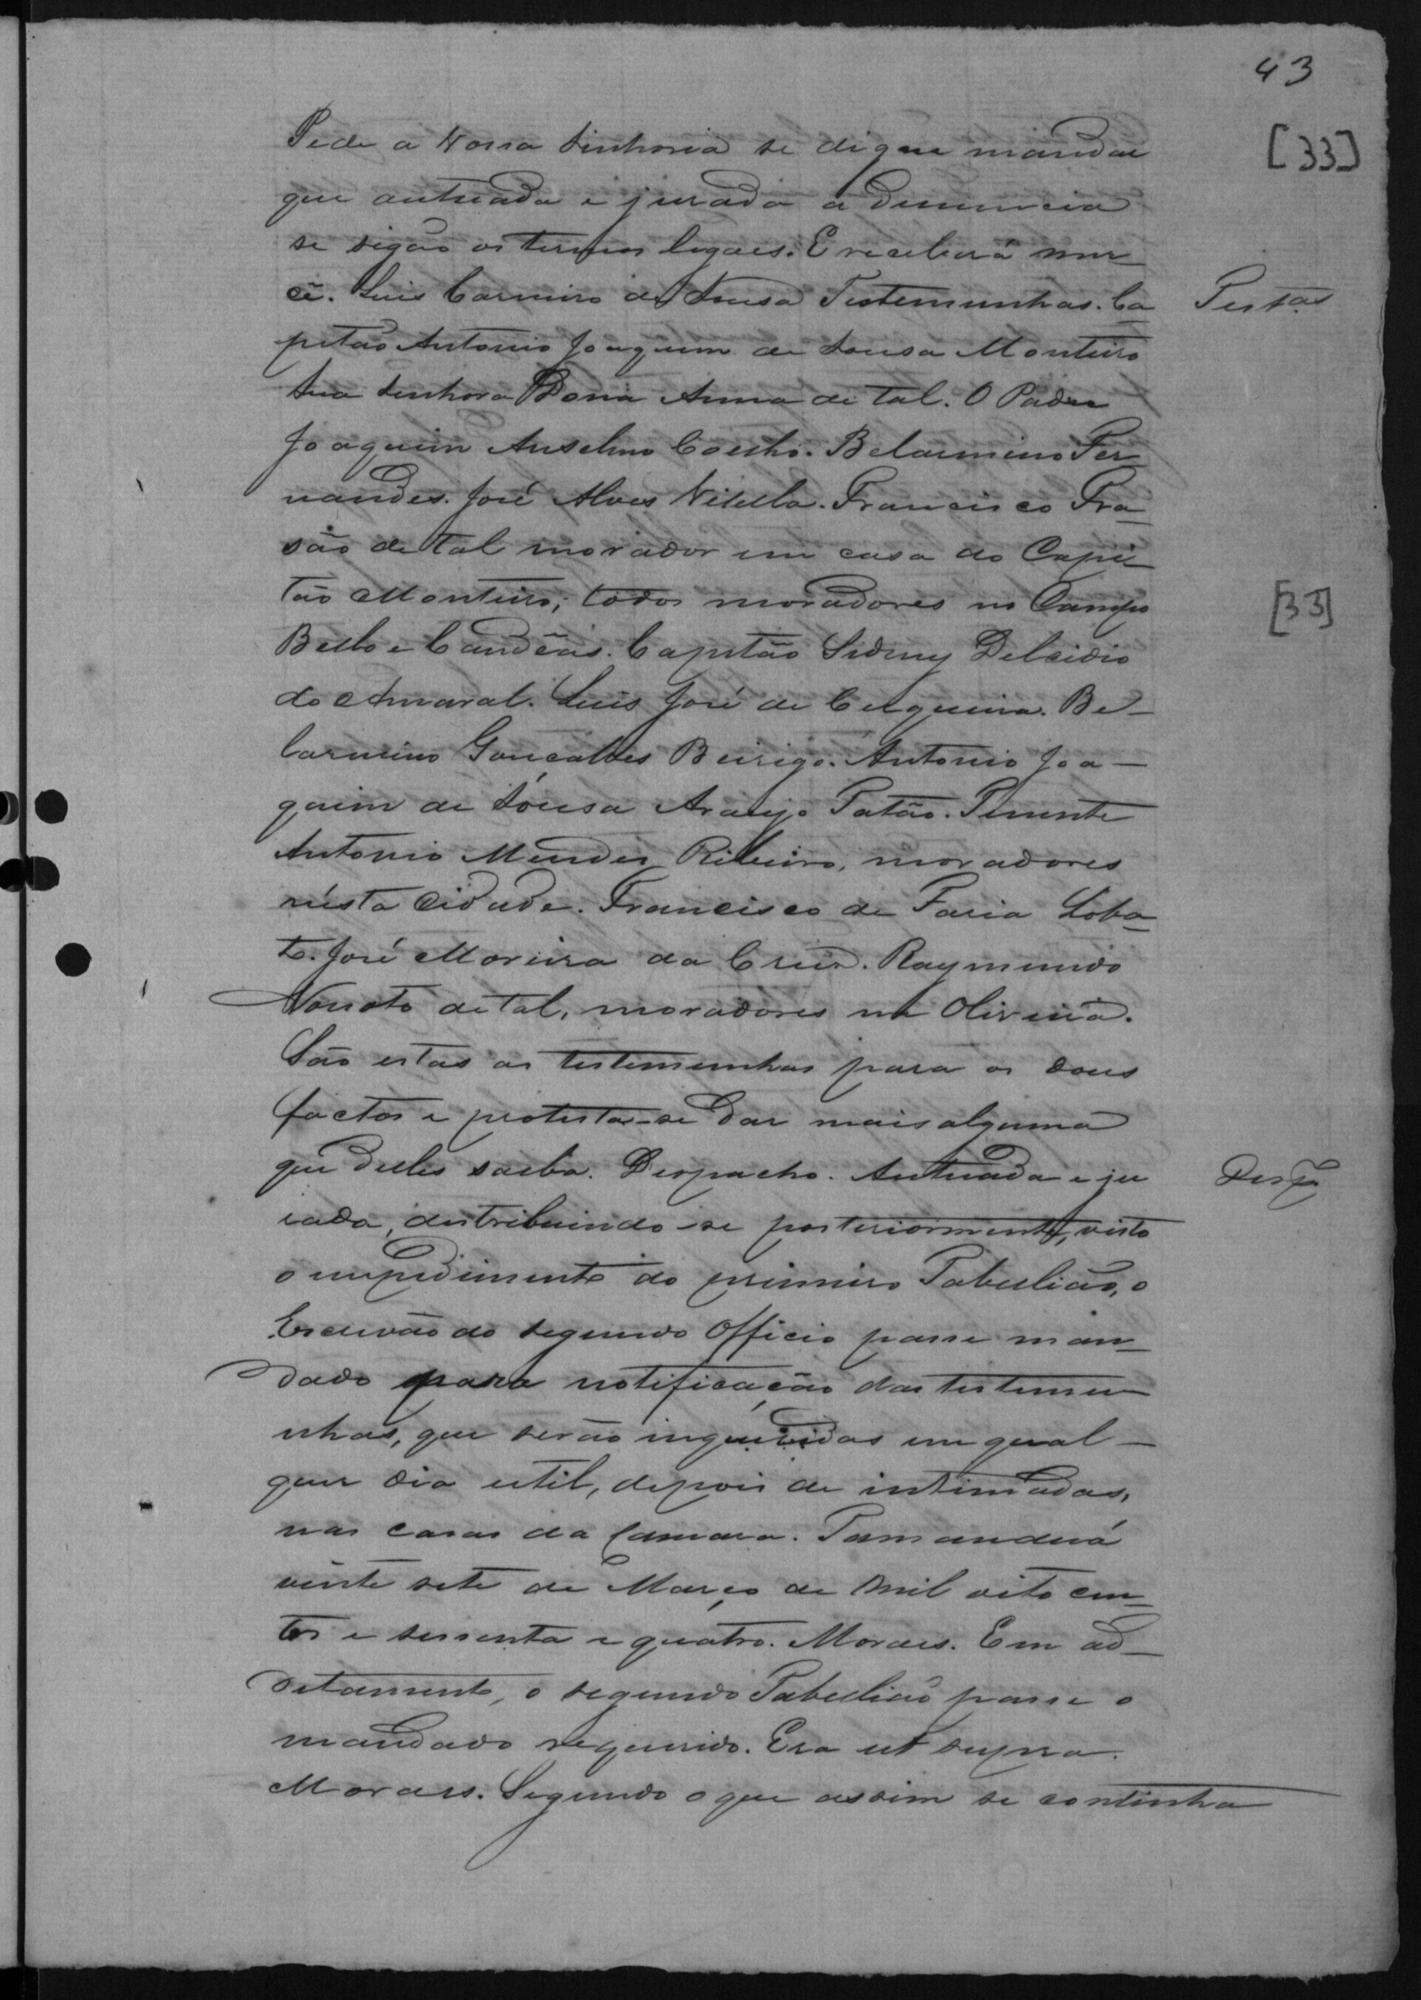 43
[33]
Pede a Vossa Senhoria se digne mandar
que autuada e jurada a denuncia
se sigão os termos legaes. E receberá mer_
cê. Luis Carneiro de Sousa Testemunhas. Ca_
Testas
pitão Antonio Joaquim de Sousa Monteiro
Sua Senhora Dona Anna de tal. O Padre
Joaquim Anselmo Coelho. Belarmino Fer_
nandes. José Alves Vilella. Francisco Fra_
são de tal morador em casa do Capi_
tão Monteiro; todos moradores no Campo
[33]
Bello e Candêas. Capitão Sidney Delcidio
do Amaral. Luis José de Cerqueira. Be_
larmino Gonçalves Beirigo. Antonio Joa_
quim de Sousa Araujo Tatão. Tenente
Antonio Mendes Ribeiro, moradores
nésta Cidade. Francisco de Faria Loba_
to. José Moreira da Cruz. Raymundo
Nonato de tal, moradores na Oliveira.
São estas as testemunhas para os dous
factos e protesta-se dar mais alguma
que delles saiba. Despacho. Autuada e ju
Despo
rada, distribuindo-se posteriormente, visto
o impedimento do primeiro Tabelião, o
Escrivão do segundo Officio passe man_
dado para notificação das testemu
nhas, que serão inqueridas em qual_
quer dia util, depois de intimadas,
nas casas da Camara. Tamanduá
vinte sete de Março de mil oito cen_
tos e sessenta e quatro. Moraes. Em ad_
ditamento, o segundo Tabelião passe o
mandado requerido. Era ut supra.
Moraes. Segundo o que assim se continha